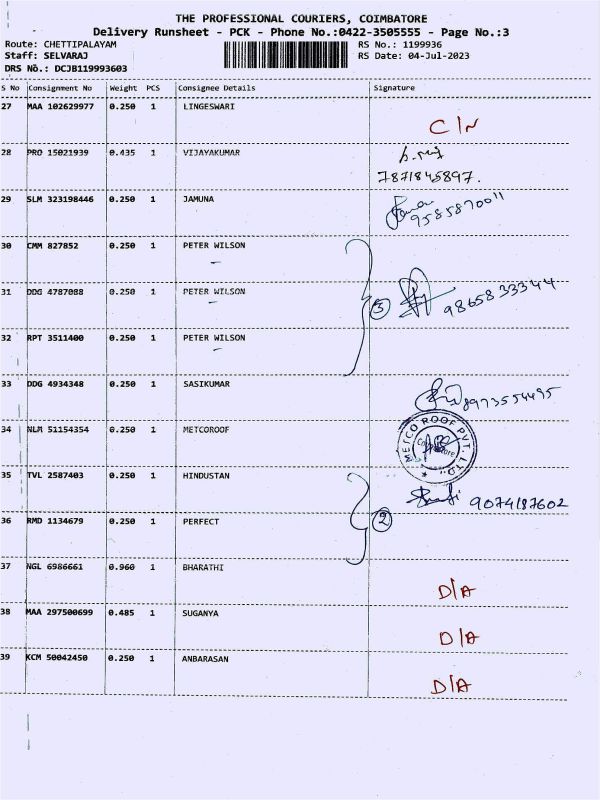 THE PROFESSIONAL COURIERS, COIMBATORE
Delivery Runsheet - PCK - Phone No.:0422-3505555 - Page No.:3
Route: CHETTIPALAYAM RS No.: 1199936
Staff: SELVARAJ RS Date: 04-Jul-2023
DRS No.: DCJB119993603
S No Consignment No Weight PCS Consignee Details Signature
27 MAA 102629977 0.250 1 LINGESWARI
C/N
28 PRO 15021939 0.435 1 VIJAYAKUMAR
7871845897.
29 SLM 323198446 0.250 1 JAMUNA
9585870011
30 CMM 827852 0.250 1 PETER WILSON
31 DDG 4787088 0.250 1 PETER WILSON
3 9865833344
32 RPT 3511400 0.250 1 PETER WILSON
33 DDG 4934348 0.250 1 SASIKUMAR
8973554495
34 NLM 51154354 0.250 1 METCOROOF
METCO ROOF PVT. LTD.
35 TVL 2587403 0.250 1 HINDUSTAN
9074187602
36 RMD 1134679 0.250 1 PERFECT
2
37 NGL 6986661 0.960 1 BHARATHI
D/A
38 MAA 297500699 0.485 1 SUGANYA
D/A
39 KCM 50042450 0.250 1 ANBARASAN
D/A